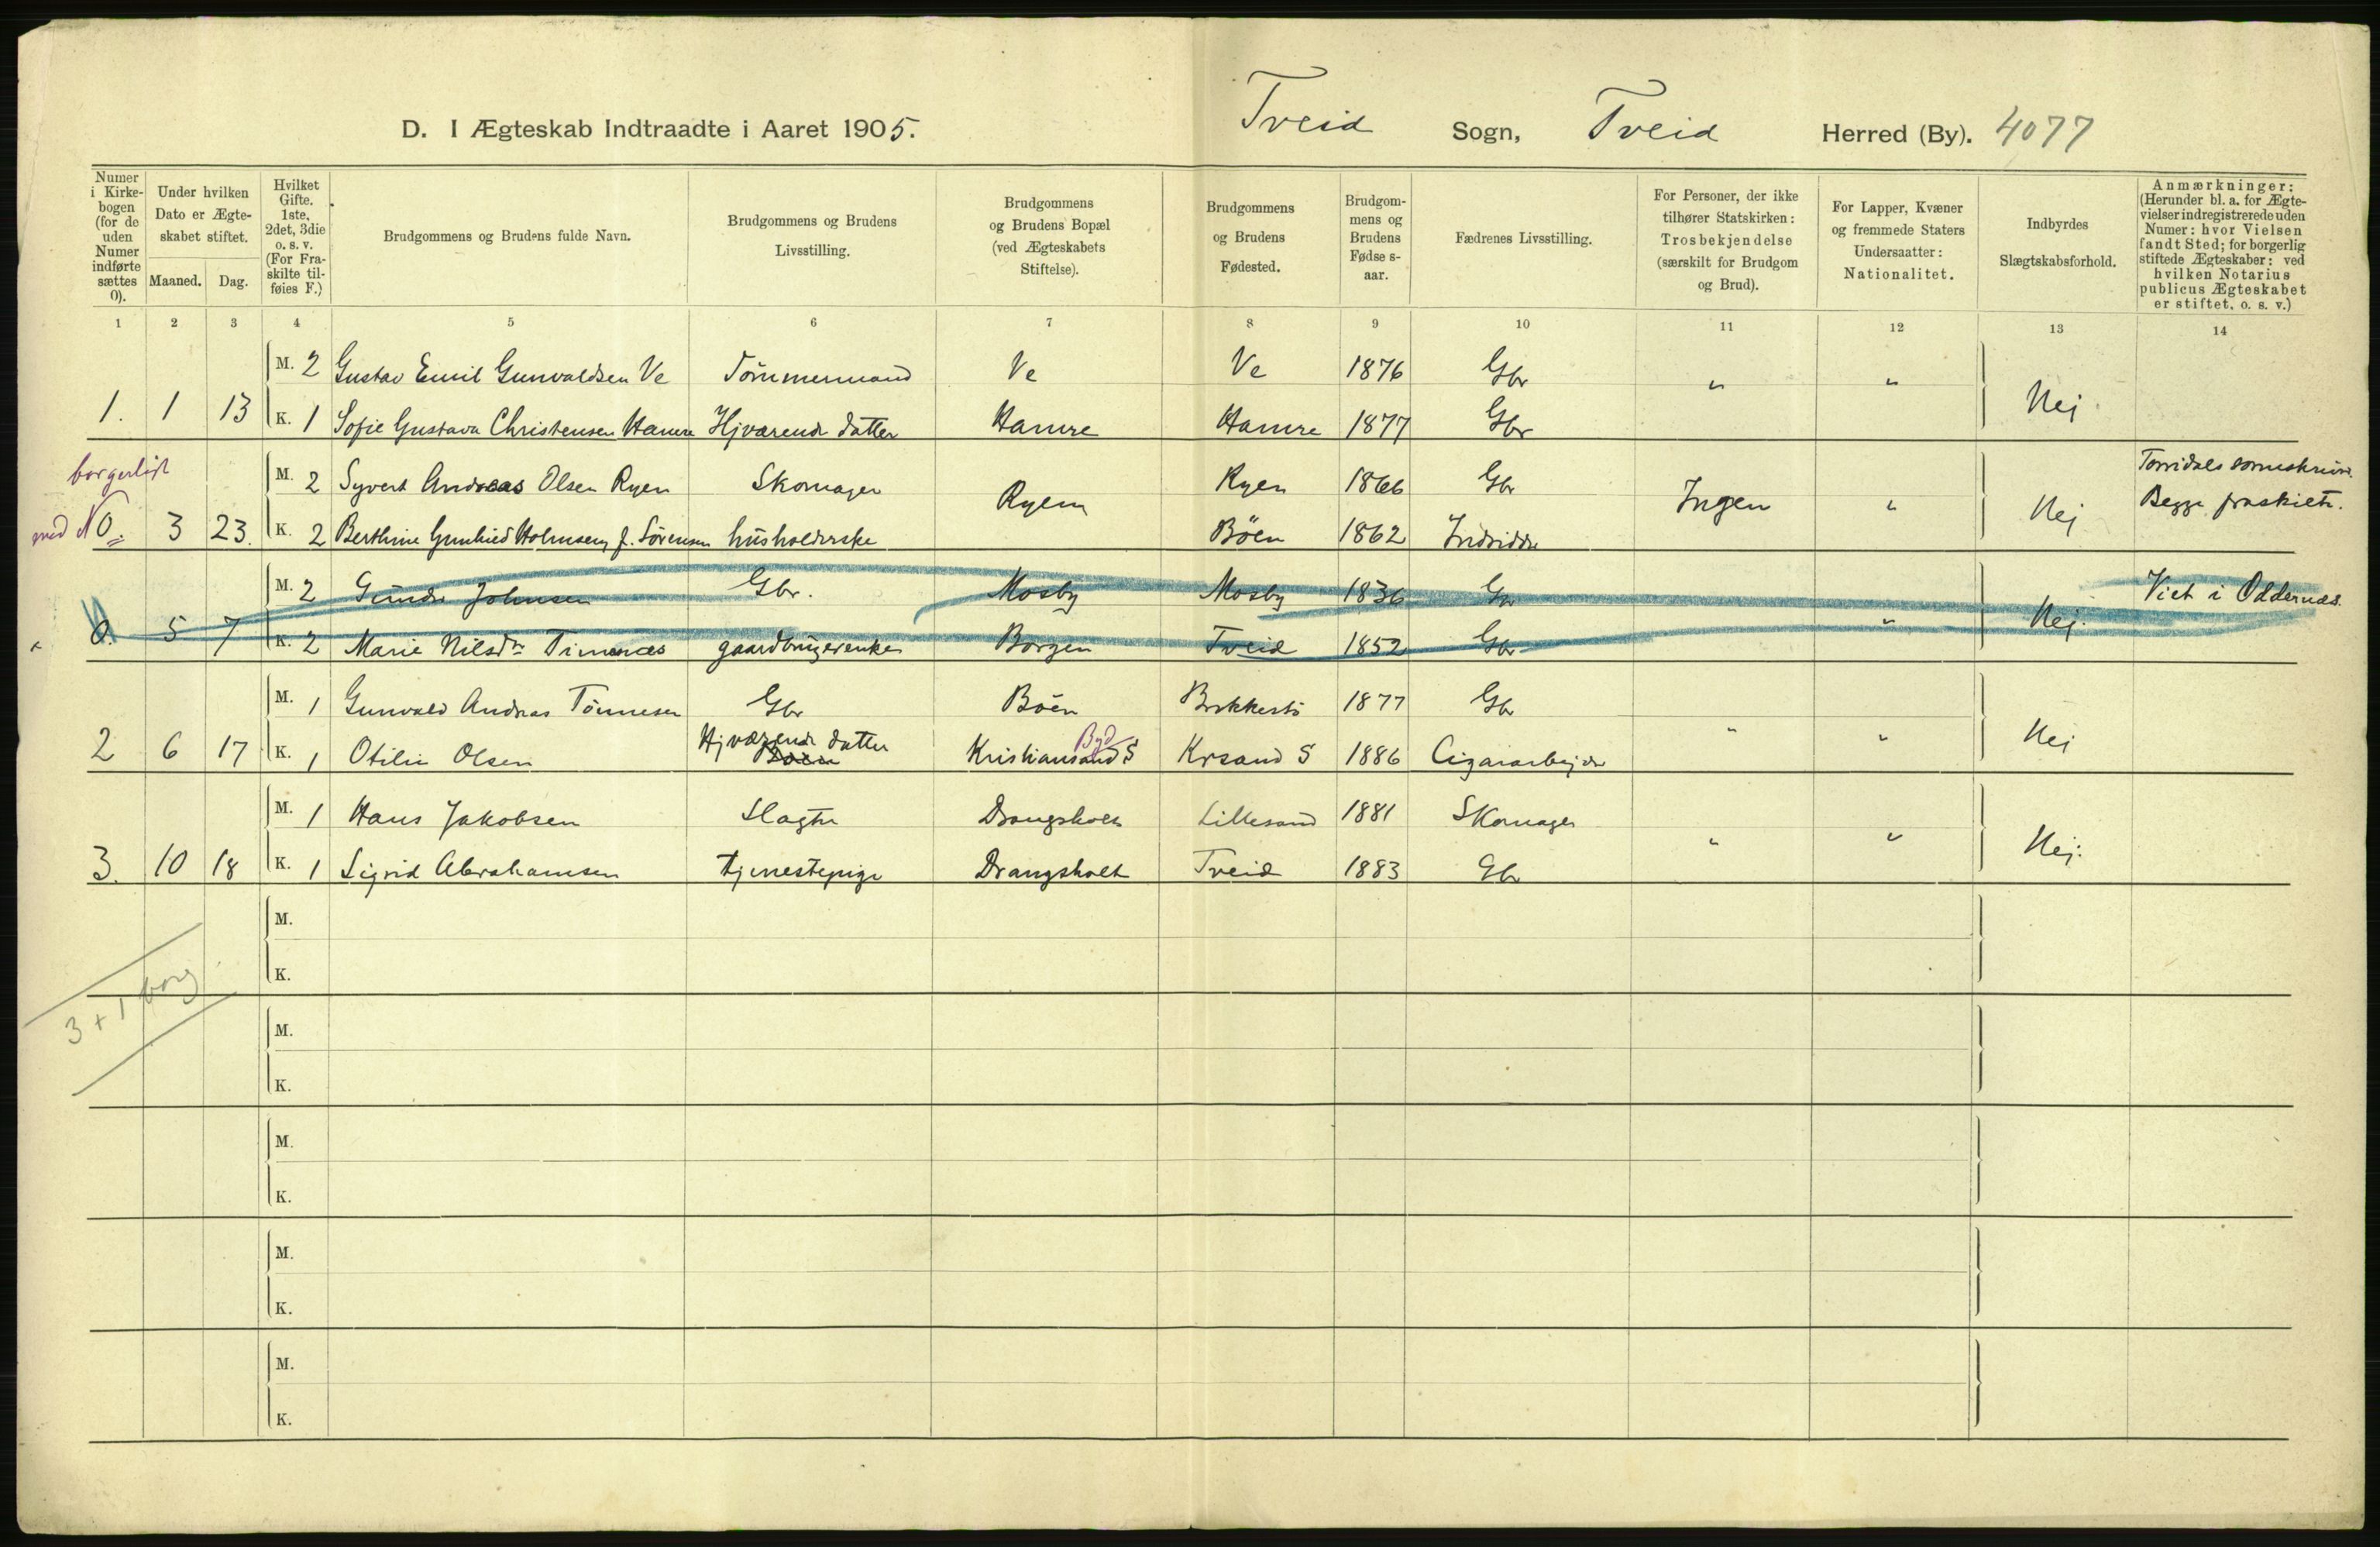 D. I Ægteskab Indtraadte i Aaret 1905. Tveid Sogn, Tveid Herred (By). 4077
Numer i Kirkebogen (for de uden Numer indførte sættes 0).
Under hvilken Dato er Ægteskabet stiftet.
Maaned. Dag.
Hvilket Gifte. 1ste, 2det, 3die o. s. v. (For Fraskilte tilføies F.)
Brudgommens og Brudens fulde Navn.
Brudgommens og Brudens Livsstilling.
Brudgommens og Brudens Bopæl (ved Ægteskabets Stiftelse).
Brudgommens og Brudens Fødested.
Brudgommens og Brudens Fødse s-aar.
Fædrenes Livsstilling.
For Personer, der ikke tilhører Statskirken: Trosbekjendelse (særskilt for Brudgom og Brud).
For Lapper, Kvæner og fremmede Staters Undersaatter: Nationalitet.
Indbyrdes Slægtskabsforhold.
Anmærkninger: (Herunder bl. a. for Ægtevielser indregistrerede uden Numer: hvor Vielsen fandt Sted; for borgerlig stiftede Ægteskaber: ved hvilken Notarius publicus Ægteskabet er stiftet, o. s. v.)
1 2 3 4 5 6 7 8 9 10 11 12 13 14
M. 2 Gustav Emil Gunvaldsen Ve Tömmermand Ve Ve 1876 Gbr " "
1. 1 13 K. 1 Sofie Gustava Christensen Hamre Hjværende datter Hamre Hamre 1877 Gbr Nej
borgerligt
M. 2 Syvert Andreas Olsen Ryen Skomager Ryen Ryen 1866 Gbr Ingen " Begge fraskilte.
0. 3 23. K. 2 Berthine Gunhild Holmsen f. Sörensen husholderske Böen 1862 Nej
M. 2 Gunder Johnsen Gbr. Mosby Mosby 1836 Gbr Viet i Oddernæs.
0. 5 7 K. 2 Marie Nilsdr Timenes gaardbrugerenke Borgen Tveid 1852 Gbr " Nej.
M. 1 Gunvald Andreas Tönnesen Gbr Böen Brekkestö 1877 Gbr " "
Byd
2 6 17 K. 1 Otilie Olsen Hjværende datter Böen Kristiansand S Krsand S 1886 Cigararbejder Nej
M. 1 Hans Jakobsen Slagter Drangsholt Lillesand 1881 Skomager " "
3. 10 18 K. 1 Sigrid Abrahamsen tjenestepige Drangsholt Tveid 1883 Gbr Nej.
M.
K.
3 + 1 borg
M.
K.
M.
K.
M.
K.
M.
K.